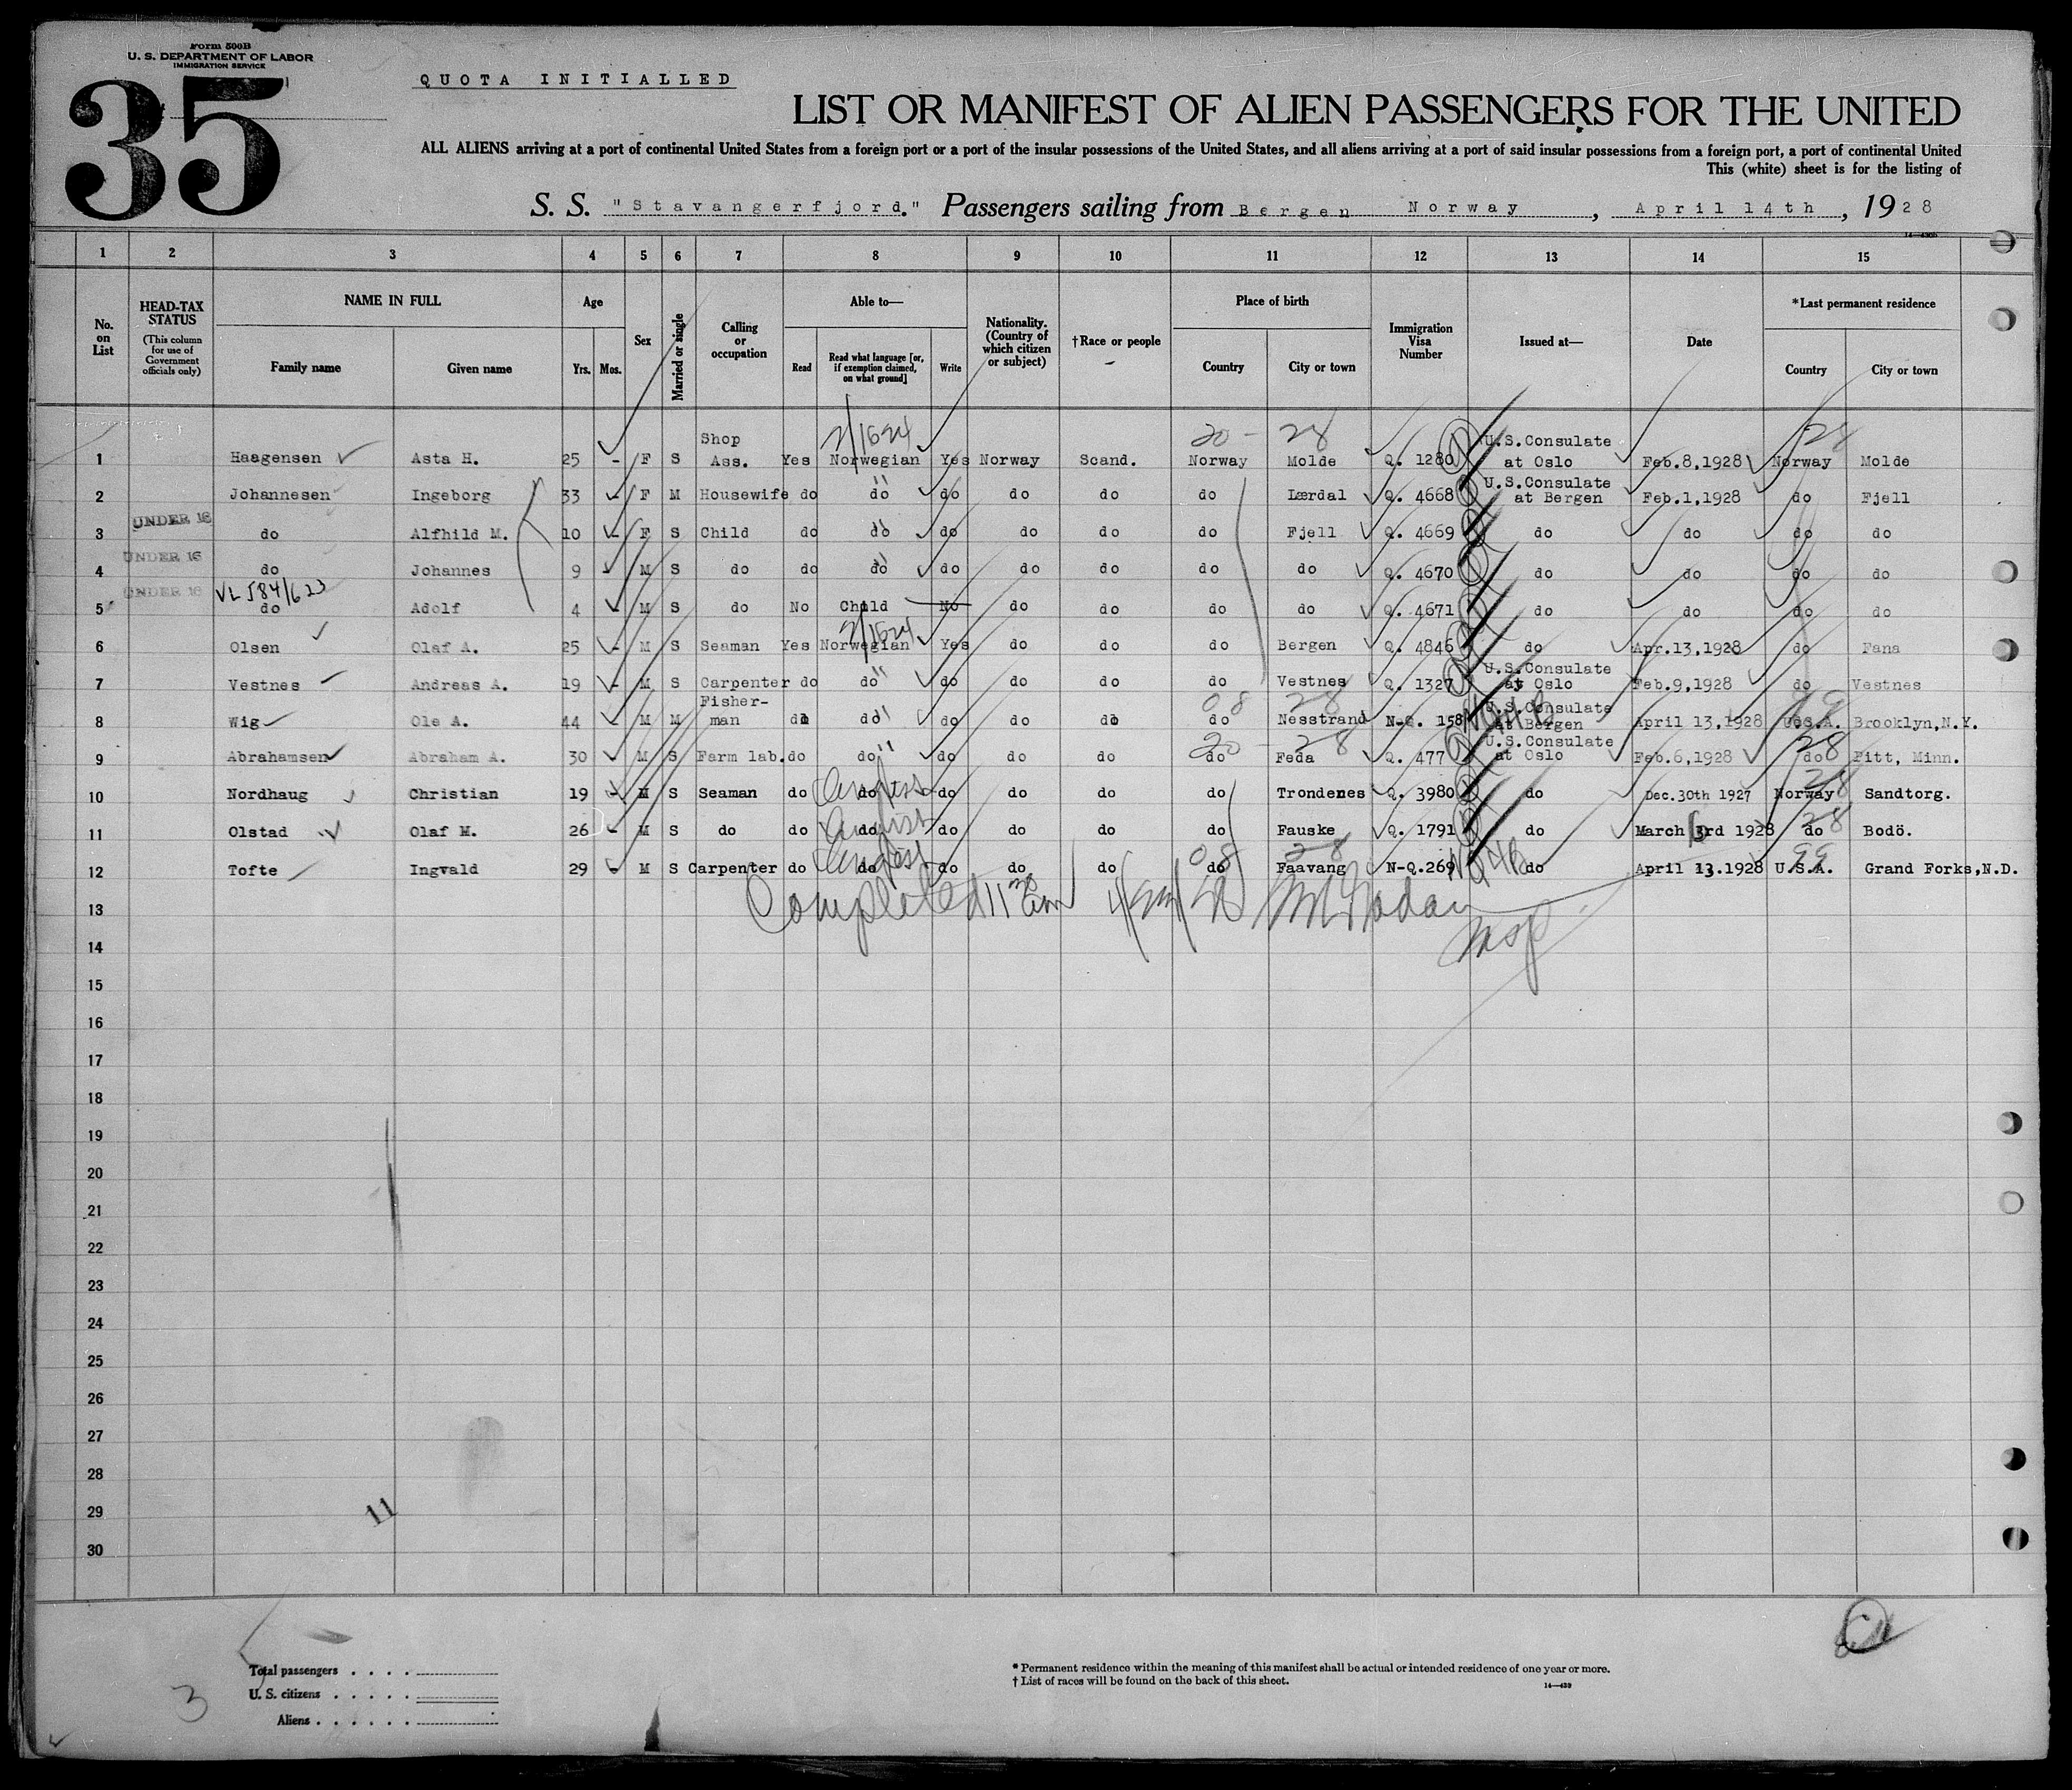 Form 500B
U. S. DEPARTMENT OF LABOR
IMMIGRATION SERVICE
35
QUOTA INITIALLED
LIST OR MANIFEST OF ALIEN PASSENGERS FOR THE UNITED
ALL ALIENS arriving at a port of continental United States from a foreign port or a port of the insular possessions of the United States, and all aliens arriving at a port of said insular possessions from a foreign port, a port of continental United
This (white) sheet is for the listing of
S. S. "Stavangerfjord." Passengers sailing from Bergen Norway, April 14th, 1928
1 2 3 4 5 6 7 8 9 10 11 12 13 14 15
No. on List
HEAD-TAX STATUS (This column for use of Government officials only)
NAME IN FULL Family name Given name
Age Yrs. Mos.
Sex
Married or single
Calling or occupation
Able to— Read Read what language [or, if exemption claimed, on what ground] Write
Nationality. (Country of which citizen or subject)
†Race or people
Place of birth Country City or town
Immigration Visa Number
Issued at—
Date
*Last permanent residence Country City or town
2/1624 20 - 28 28
1 Haagensen Asta H. 25 - F S Shop Ass. Yes Norwegian Yes Norway Scand. Norway Molde Q. 1280 U.S.Consulate at Oslo Feb.8,1928 Norway Molde
2 Johannesen Ingeborg 33 - F M Housewife do do do do do do Lærdal Q. 4668 U.S.Consulate at Bergen Feb.1,1928 do Fjell
UNDER 16
3 do Alfhild M. 10 - F S Child do do do do do do Fjell Q. 4669 do do do do
UNDER 16
4 do Johannes 9 - M S do do do do do do do do Q. 4670 do do do do
UNDER 16 VL 584/623
5 do Adolf 4 - M S do No Child No do do do do Q. 4671 do do do do
2/1624
6 Olsen Olaf A. 25 - M S Seaman Yes Norwegian Yes do do do Bergen Q. 4846 do Apr.13,1928 do Fana
7 Vestnes Andreas A. 19 - M S Carpenter do do do do do do Vestnes Q. 1327 U.S.Consulate at Oslo Feb.9,1928 do Vestnes
08 28 99
8 Wig Ole A. 44 M M Fisherman do do do do do do Nesstrand N-Q. 158 U.S.Consulate at Bergen April 13,1928 U.S.A. Brooklyn,N.Y.
20 - 28 28
9 Abrahamsen Abraham A. 30 M S Farm lab. do do do do do do Feda Q. 477 U.S.Consulate at Oslo Feb.6,1928 do Pitt, Minn.
English 28
10 Nordhaug Christian 19 - M S Seaman do do do do do do Trondenes Q. 3980 do Dec.30th 1927 Norway Sandtorg.
English 28
11 Olstad Olaf M. 26 - M S do do do do do do do Fauske Q. 1791 do March 3rd 1928 do Bodö.
English 08 28 99
12 Tofte Ingvald 29 - M S Carpenter do do do do do do Faavang N-Q.269 do April 13.1928 U.S.A. Grand Forks,N.D.
Completed 11 30 am
Insp
13
14
15
16
17
18
19
20
21
22
23
24
25
26
27
28
29
11
30
Total passengers . . . .
U. S. citizens . . . . .
Aliens . . . . . .
3
* Permanent residence within the meaning of this manifest shall be actual or intended residence of one year or more.
† List of races will be found on the back of this sheet.
14—439